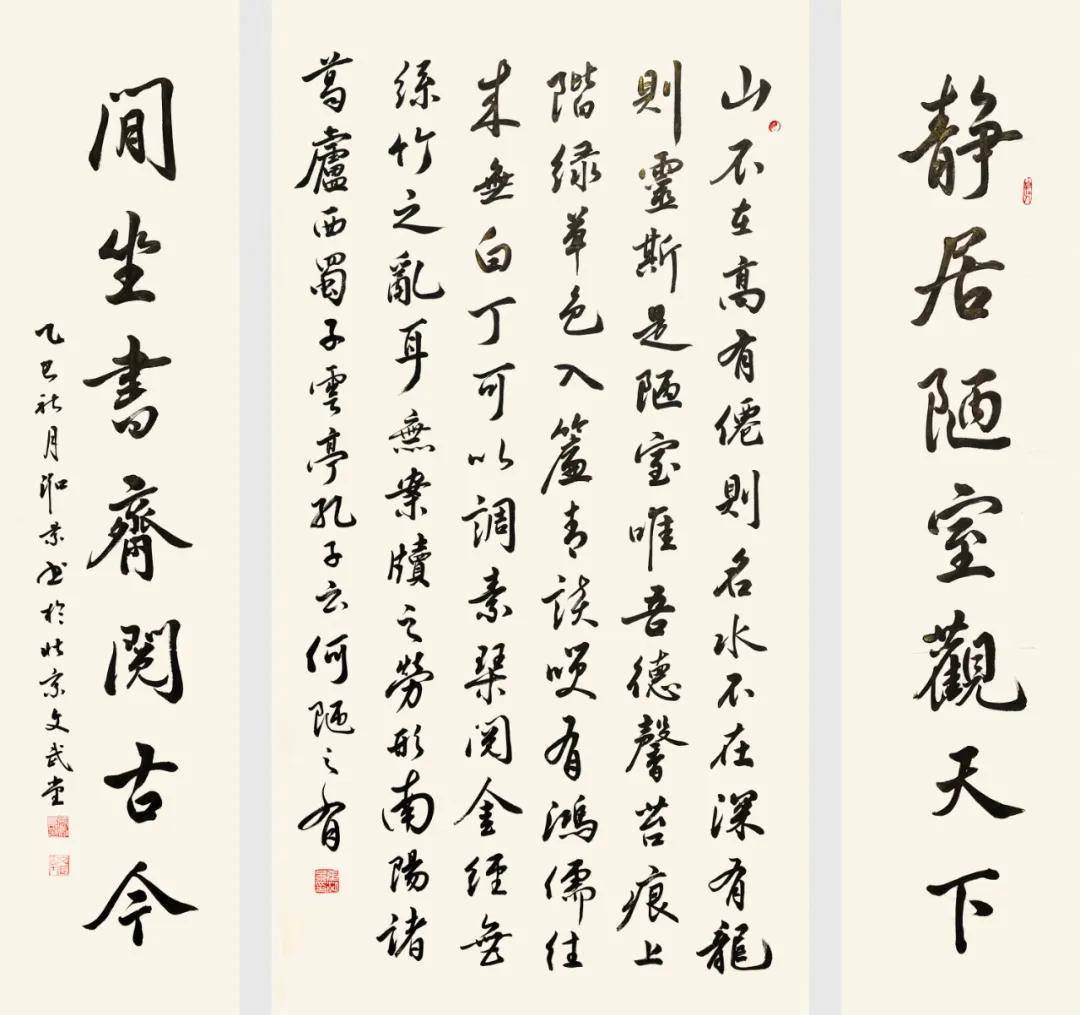 静居陋室觀天下
山不在高有僊則名水不在深有龍
則靈斯是陋室唯吾德馨苔痕上
階緑草色入簾青談咲有鴻儒往
来無白丁可以調素琴閲金經無
絲竹之亂耳無案牘之勞形南陽諸
葛廬西蜀子雲亭孔子云何陋之有
閒坐書齋閲古今
乙巳社月景书於北京文武堂